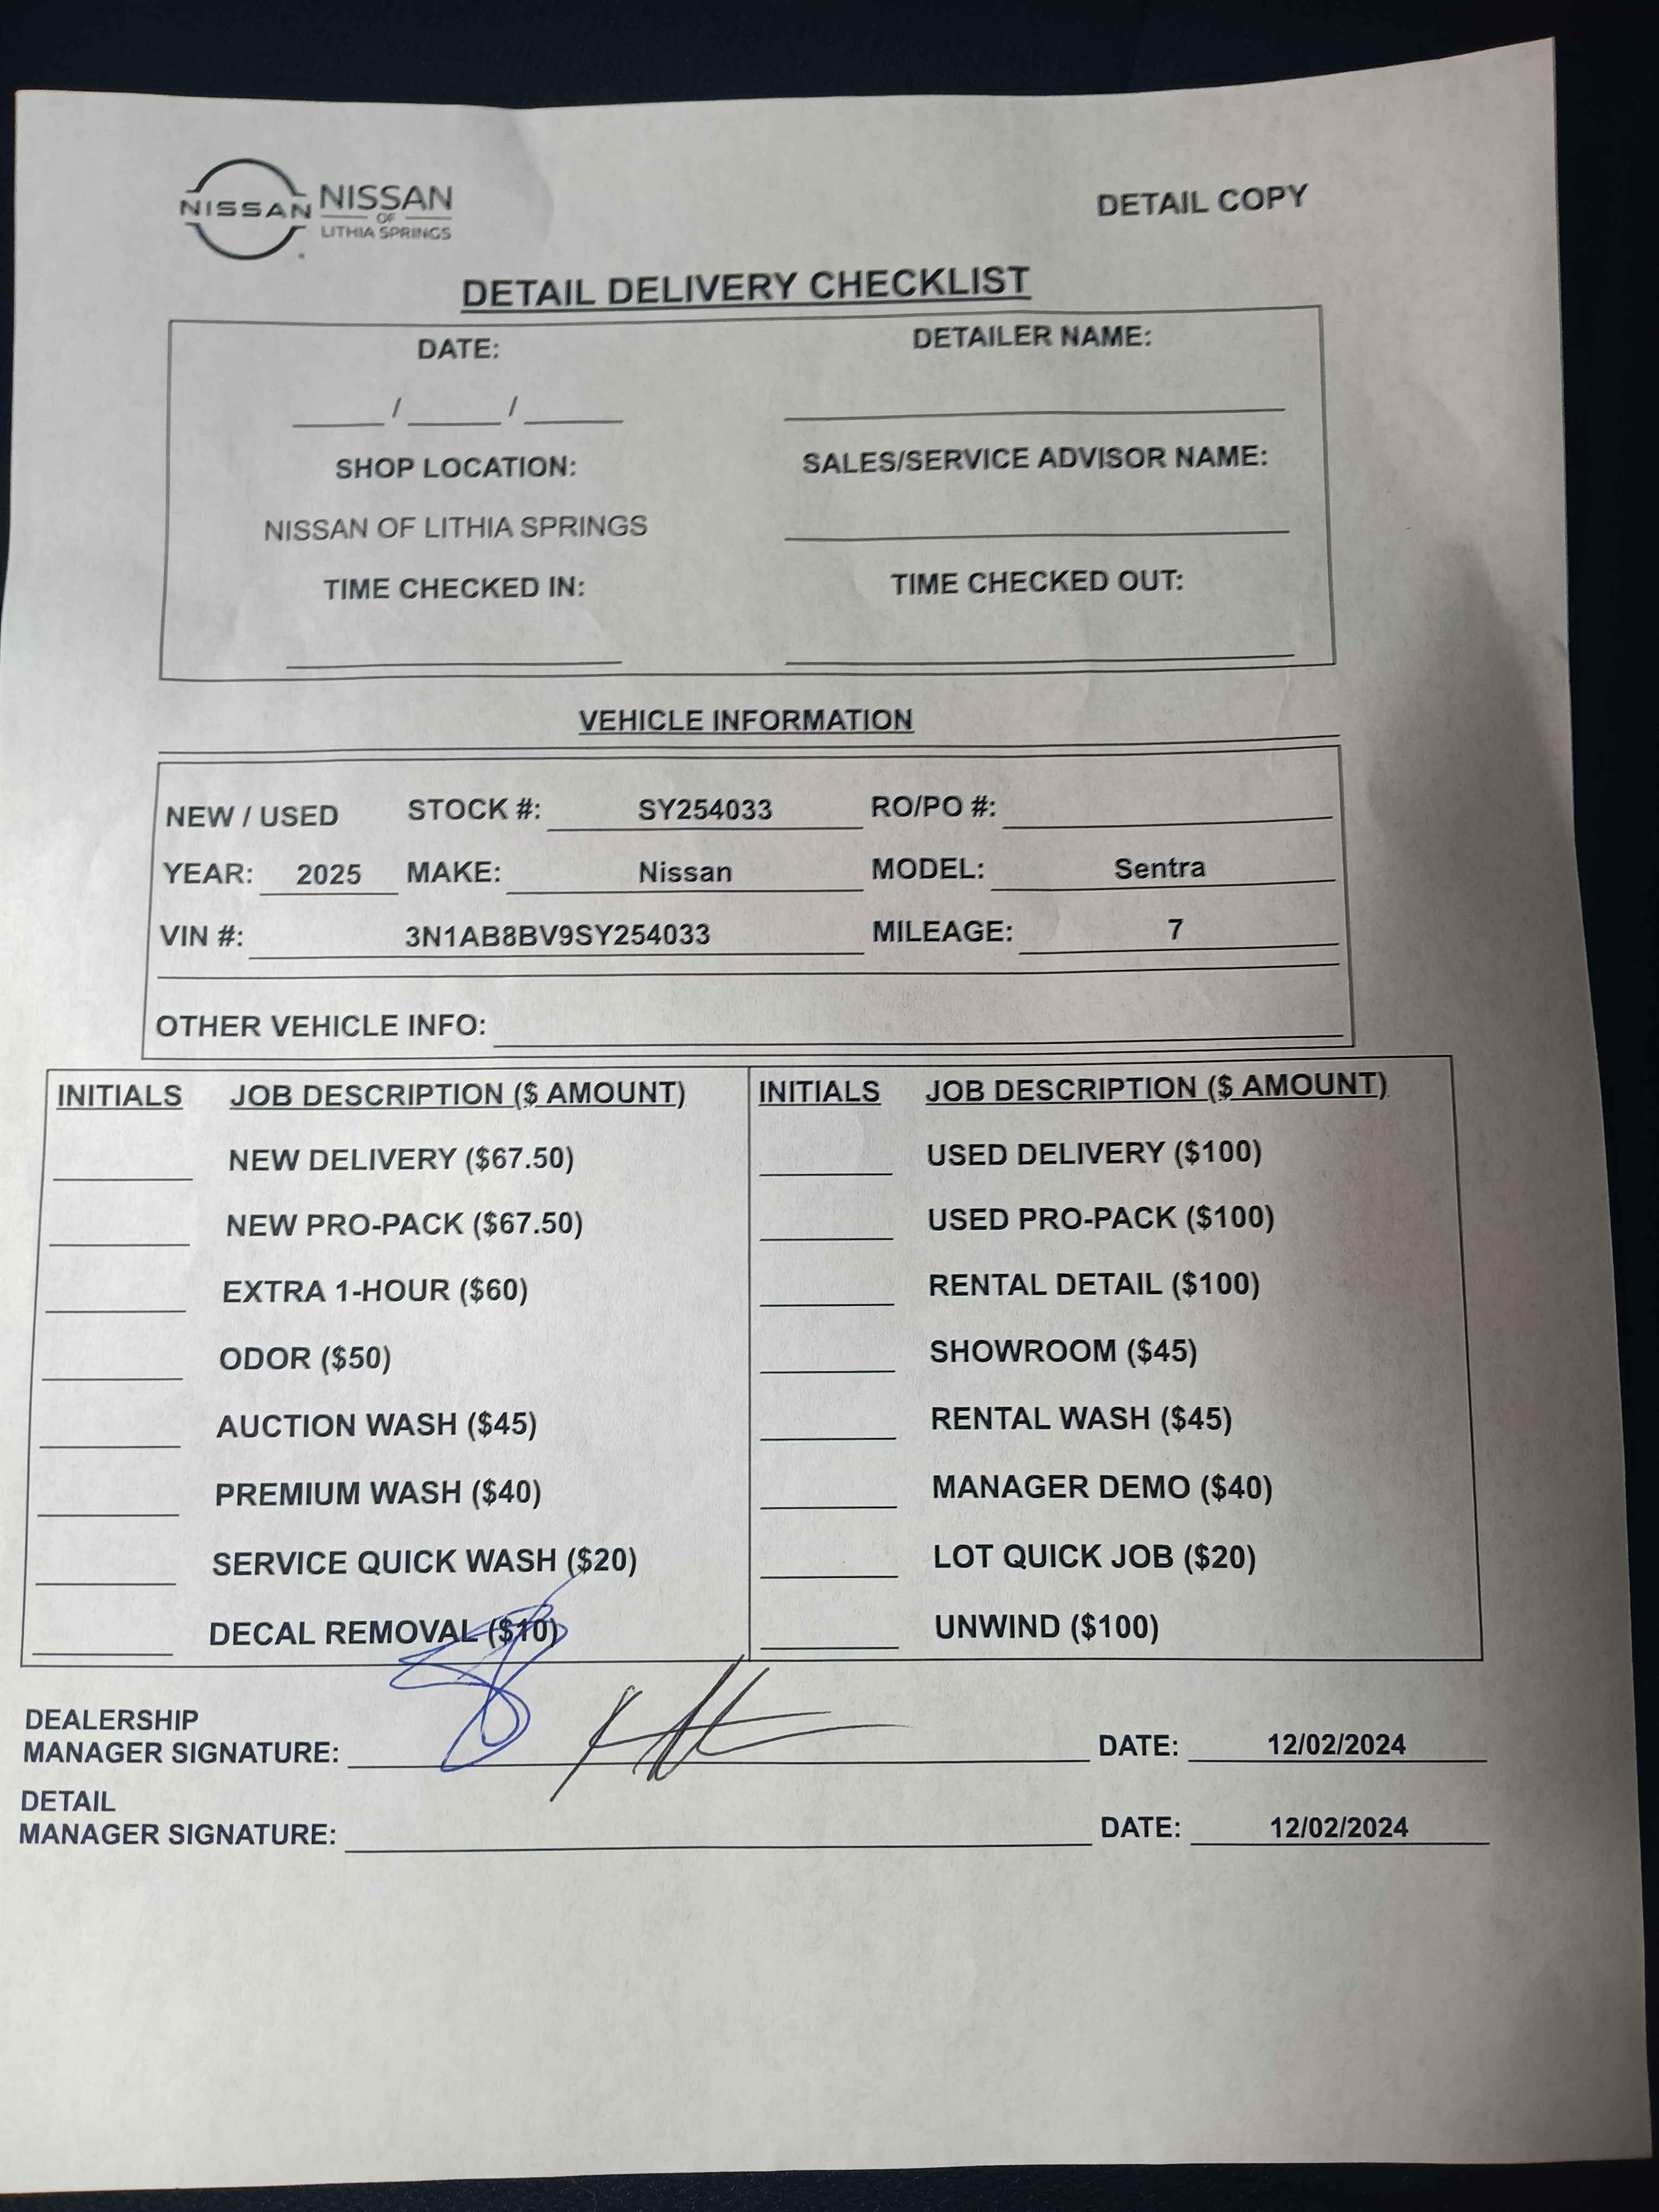 NISSAN NISSAN
OF
LITHIA SPRINGS
DETAIL COPY
DETAIL DELIVERY CHECKLIST
DATE: DETAILER NAME:
____/____/____ ____________________
SHOP LOCATION: SALES/SERVICE ADVISOR NAME:
NISSAN OF LITHIA SPRINGS ____________________
TIME CHECKED IN: TIME CHECKED OUT:
VEHICLE INFORMATION
NEW / USED STOCK #: SY254033 RO/PO #:
YEAR: 2025 MAKE: Nissan MODEL: Sentra
VIN #: 3N1AB8BV9SY254033 MILEAGE: 7
OTHER VEHICLE INFO:
INITIALS JOB DESCRIPTION ($ AMOUNT) INITIALS JOB DESCRIPTION ($ AMOUNT)
NEW DELIVERY ($67.50) USED DELIVERY ($100)
NEW PRO-PACK ($67.50) USED PRO-PACK ($100)
EXTRA 1-HOUR ($60) RENTAL DETAIL ($100)
ODOR ($50) SHOWROOM ($45)
AUCTION WASH ($45) RENTAL WASH ($45)
PREMIUM WASH ($40) MANAGER DEMO ($40)
SERVICE QUICK WASH ($20) LOT QUICK JOB ($20)
DECAL REMOVAL ($10) UNWIND ($100)
DEALERSHIP
MANAGER SIGNATURE: DATE: 12/02/2024
DETAIL
MANAGER SIGNATURE: DATE: 12/02/2024